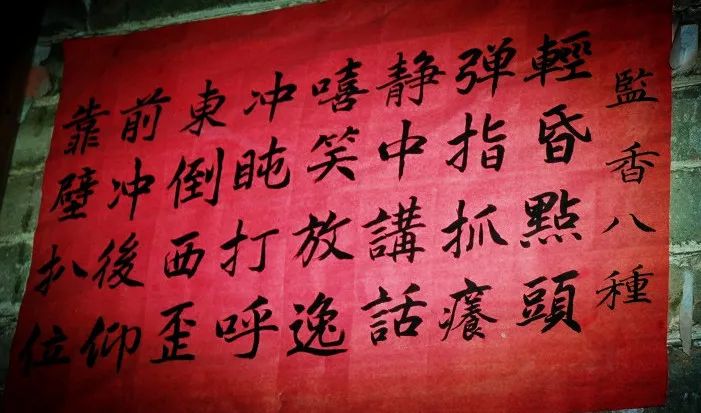 監香八種
輕昏點頭
彈指抓癢
静中講話
嘻笑放逸
冲盹打呼
東倒西歪
前冲後仰
靠壁扒位